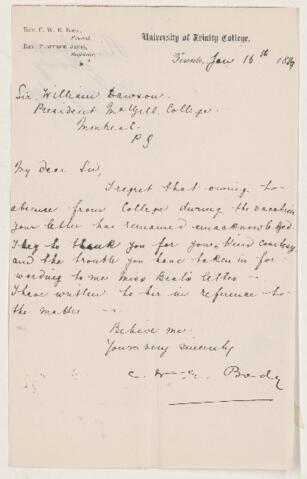 Rev. C. W. E. Body,
Provost.
Rev. Professor Jones,
Registrar.
University of Trinity College,
Toronto, Jan 16th 1889
Sir William Dawson
President McGill College
Montreal
P Q
My dear Sir,
I regret that owing to
absence from College during the vacation
your letter has remained unacknowledged
I beg to thank you for your kind courtesy
and the trouble you have taken in for-
warding to me Miss Beal's letter —
I have written to her in reference to
the matter —
Believe me
Yours very sincerely
C. W. E. Body